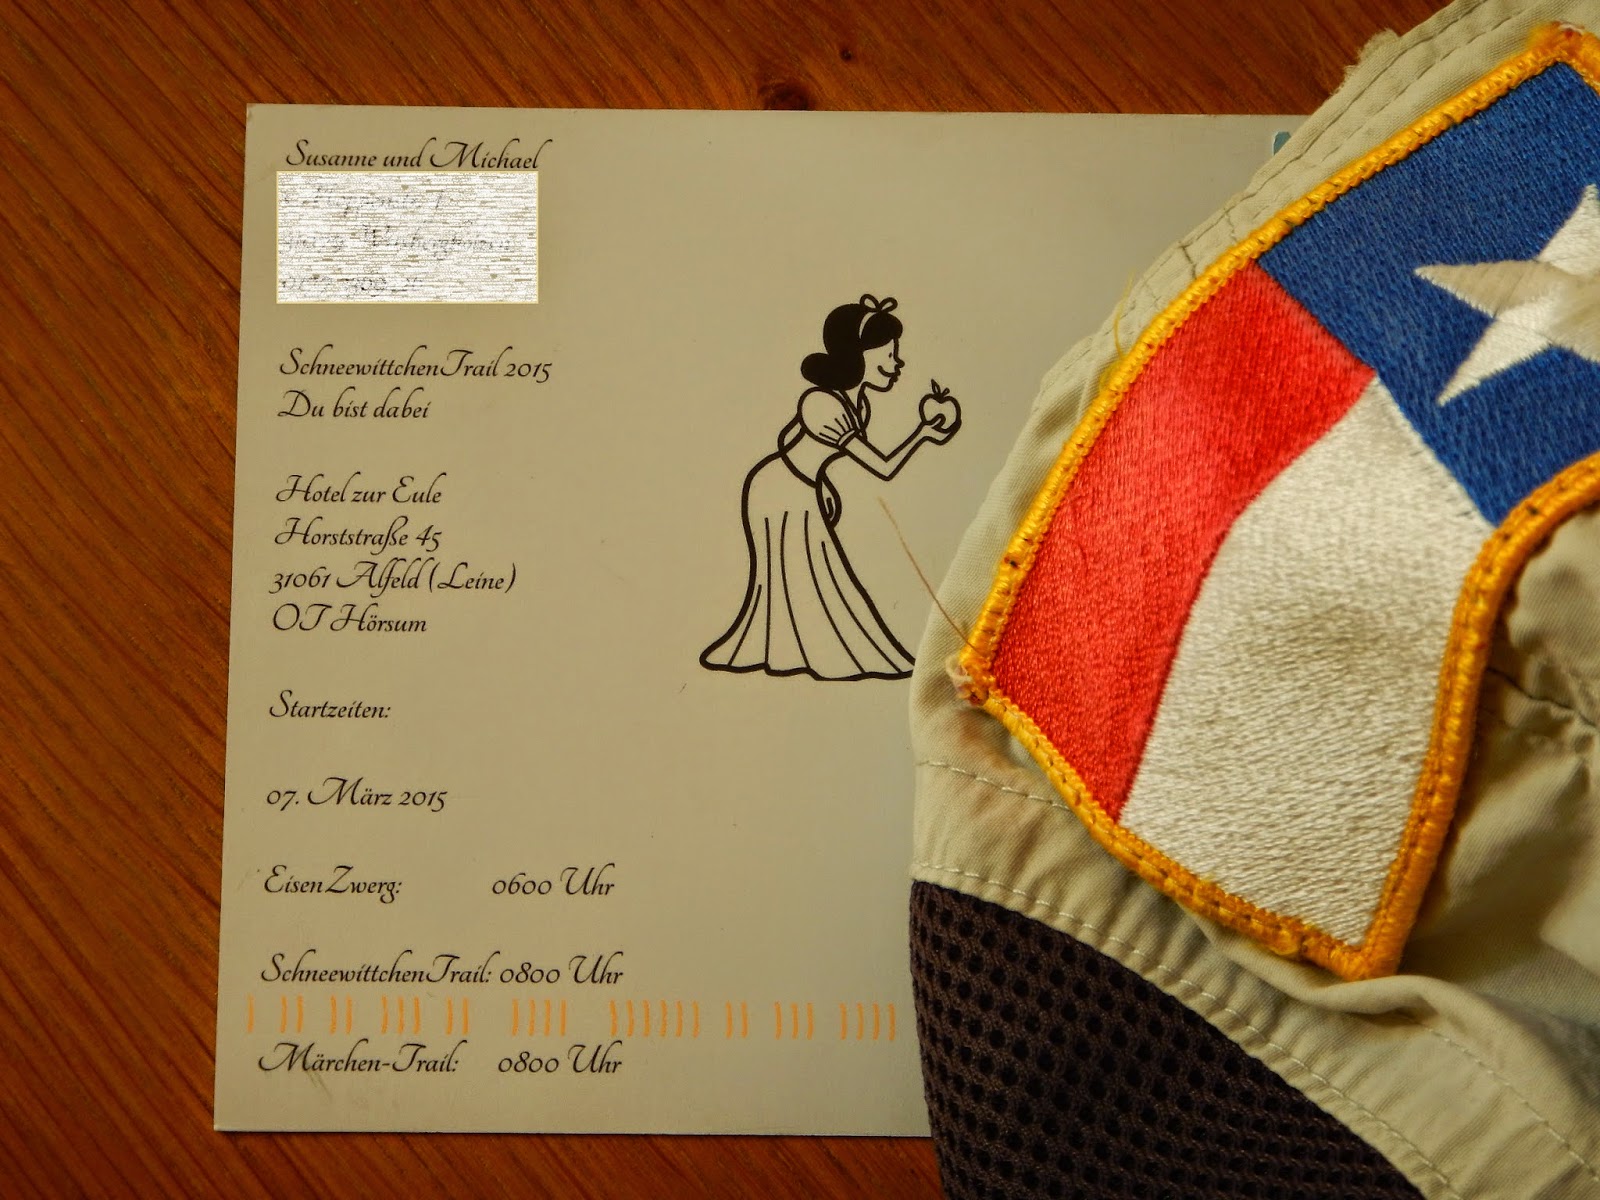 Susanne und Michael
SchneewittchenTrail 2015
Du bist dabei
Hotel zur Eule
Horststraße 45
31061 Alfeld (Leine)
OT Hörsum
Startzeiten:
07. März 2015
EisenZwerg: 0600 Uhr
SchneewittchenTrail: 0800 Uhr
Märchen-Trail: 0800 Uhr